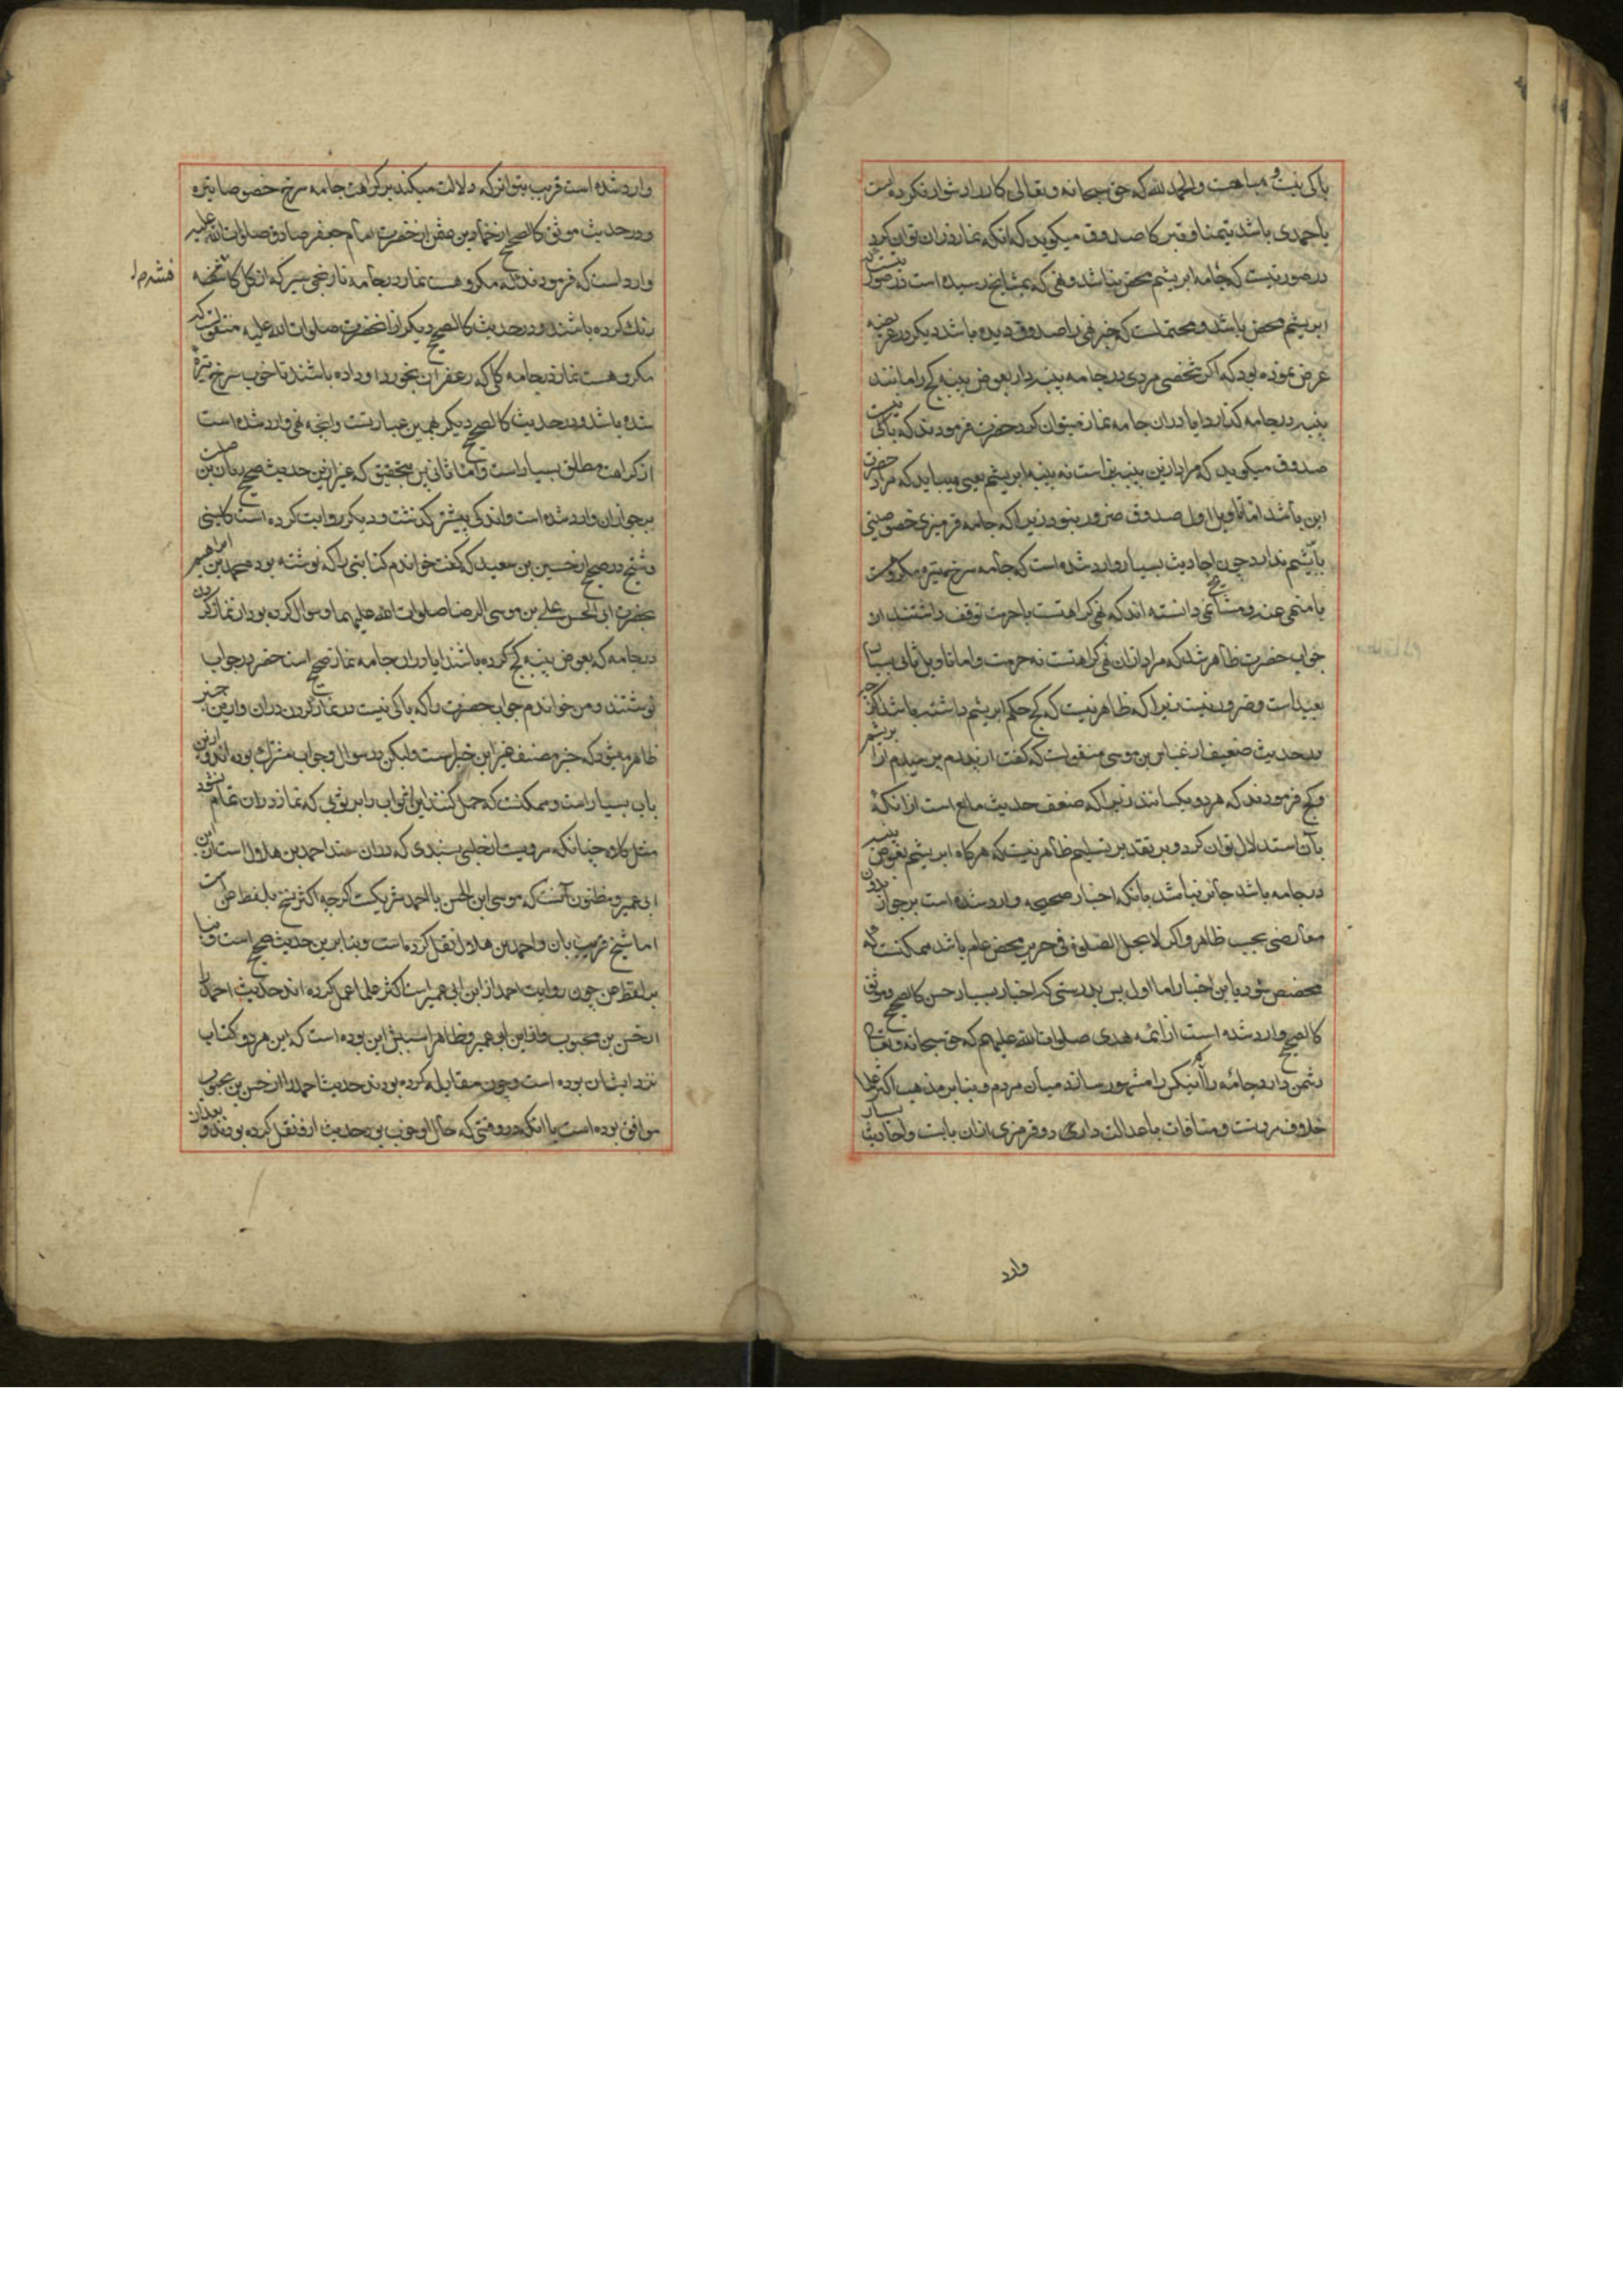 باکی نیست و مباهست و الحمد لله که حق سبحانه و تعالی کار را دشوار نکرده است
یا حمدی باشد تیمنا و قبر کا صدوق میکوید که انکه نماز در ان توان کرد
در صورتیست که جامه ابریشم محض نباشد و نهی که بمشایخ رسیده است در صورتیست که
ابریشم محض باشد و محتملست که خبر نهی را صدوق دیده باشد دیکر در عریضه
عرض نموده بود که اکر شخصی مردی در جامه پنبه دار بعوض پنبه کج را مانند
پنبه در جامه کذارد ایا در ان جامه نماز میتوان کرد حضرت فرمودند که باکی نیست
صدوق میکوید که مراد ازین پنبه بز است نه پنبه ابریشم یعنی میباید که مراد حضرت
این باشد اما تاویل اول صدوق ضرور نبود زیرا که جامه قرمزی خصوصیتی
بابریشم ندارد چون احادیث بسیار وارد شده است که جامه سرخ تیره مکروهست
یا منهی عنه و مشایخ نمی دانسته اند که نهی کراهتست یا حرمت توقف داشتند از
جواب حضرت ظاهر شد که مراد ازان نهی کراهتست نه حرمت و اما تاویل ثانی بسیار
بعید است و ضرور نیست زیرا که ظاهر نیست که کج حکم ابریشم داشته باشد اکر چه
در حدیث ضعیف از عباس بن موسی منقولست که کفت از پدرم پرسیدم از ابریشم
و کج فرمودند که هر دو یکسانند زیرا که ضعف حدیث مانع است از انکه
بآن استدلال توان کرد و بر تقدیر تسلیم ظاهر نیست که هرکاه ابریشم بعوض پنبه
در جامه باشد جائز نباشد بانکه اخبار صحیحه وارد شده است بر جواز بدون
معارضی بحسب ظاهر و اکر لا تحل الصلوة فی حریر محض عام باشد ممکنست که
مخصص شود باین اخبار اما اول پس بدرستی که اخبار بسیار حسن کالصحیح و موثق
کالصحیح وارد شده است از ائمه هدی صلوات الله علیهم که حق سبحانه و تعالی
دشمن دارد جامه را که اینکس را مشهور سازد میان مردم و بنابرین مذهب اکثر علما
خلاف مروتست و منافات با عدالت دارد و قرمزی ازان بابت و احادیث بسیار
وارد
وارد شده است قریب بتواتر که دلالت میکند بر کراهت جامه سرخ خصوصا تیره
و در حدیث موثق کالصحیح از حماد بن عثمن از حضرت امام جعفر صادق صلوات الله علیه
وارد است که فرمودند که مکروهست نماز در جامه نارنجی سیر که از کل کافشه
رنک کرده باشند و در حدیث کالصحیح دیکر از انحضرت صلوات الله علیه منقولست که
مکروهست نماز در جامه کلی که زعفران بخورد او داده باشند تا خوب سرخ تیره
شده باشد و در حدیث کالصحیح دیکر بهمین عبارتست و انچه نهی وارد شده است
از کراهت مطلق بسیار است و اما ثانی پس بتحقیق که غیر ازین حدیث صحیح ریان بن صلت
بر جواز ان وارد شده است و اندکی پیشتر کذشت و دیکر روایت کرده است کلینی
و شیخ در صحیح از حسین بن سعید که کفت خواندم کتابتی را که نوشته بود محمد بن ابراهیم
بحضرت ابی الحسن علی بن موسی الرضا صلوات الله علیهما و سوال کرده بود از نماز کردن
در جامه که بعوض پنبه کج کرده باشند ایا در ان جامه نماز صحیح است حضرت در جواب
نوشتند و من خواندم جواب حضرت را که باکی نیست در نماز کردن در ان و ازین خبر
ظاهر میشود که خبر مصنف غیر این خبر است ولیکن در سوال و جواب مشترک بوده اند و ازین
باب بسیار است و ممکنست که حمل کنند این ابواب را بر ثوبی که نماز در ان تمام نشود
مثل کلاه چنانکه مرویست از حلبی بسندی که در ان سند احمد بن هلال است از ابن
ابی عمیر و مظنون آنست که موسی ابن الحسن با احمد شریکست اکرچه اکثر نسخ بلفظ عن است
اما شیخ قریب بان و احمد بن هلال نقل کرده است و بنابرین حدیث صحیح است و بنا
بر لفظ عن چون روایت احمد از ابن ابی عمیر است اکثر علما عمل کرده اند حدیث احمد را
از حسن بن محبوب و از ابن ابو عمیر و ظاهرا سببش این بوده است که این هر دو کتاب
نزد ایشان بوده است و چون مقابله کرده بودند حدیث احمد را از حسن بن محبوب
موافق بوده است یا انکه در وقتی که حال او خوب بود حدیث از و نقل کرده بودند و بعد ازان